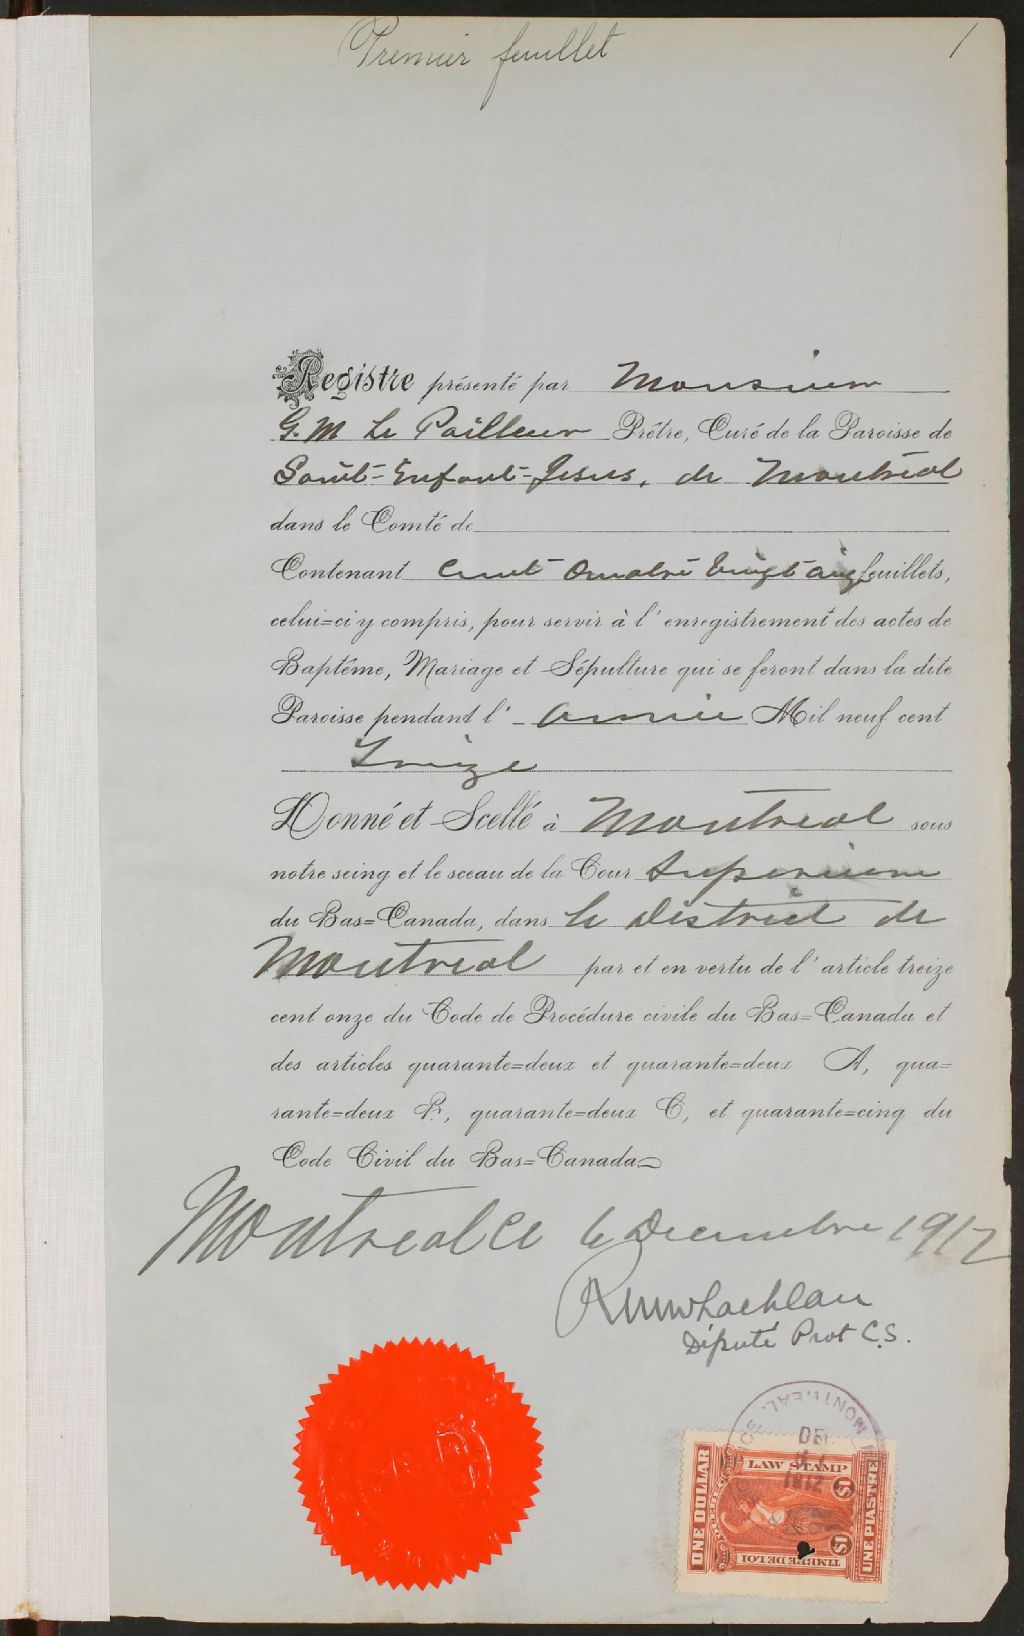 Premier feuillet
1
Registre présenté par Monsieur
G. M Le Pailleur Prêtre, Curé de la Paroisse de
Saint-Enfant-Jésus, de Montréal
dans le Comté de
Contenant Cent Quatre Vingt feuillets,
celui=ci y compris, pour servir à l'enregistrement des actes de
Baptême, Mariage et Sépulture qui se feront dans la dite
Paroisse pendant l'année Mil neuf cent
Treize
Donné et Scellé à Montreal sous
notre seing et le sceau de la Cour Supérieure
du Bas=Canada, dans le District de
Montreal par et en vertu de l'article treize
cent onze du Code de Procédure civile du Bas=Canada et
des articles quarante=deux et quarante=deux A, qua=
rante=deux B, quarante=deux C, et quarante=cinq du
Code Civil du Bas=Canada
Montreal ce 6 Decembre 1912
Député Prot C.S.
MONTREAL.
1912
ONE DOLLAR
LAW STAMP
$1
$1
TIMBRE DE LOI
UNE PIASTRE